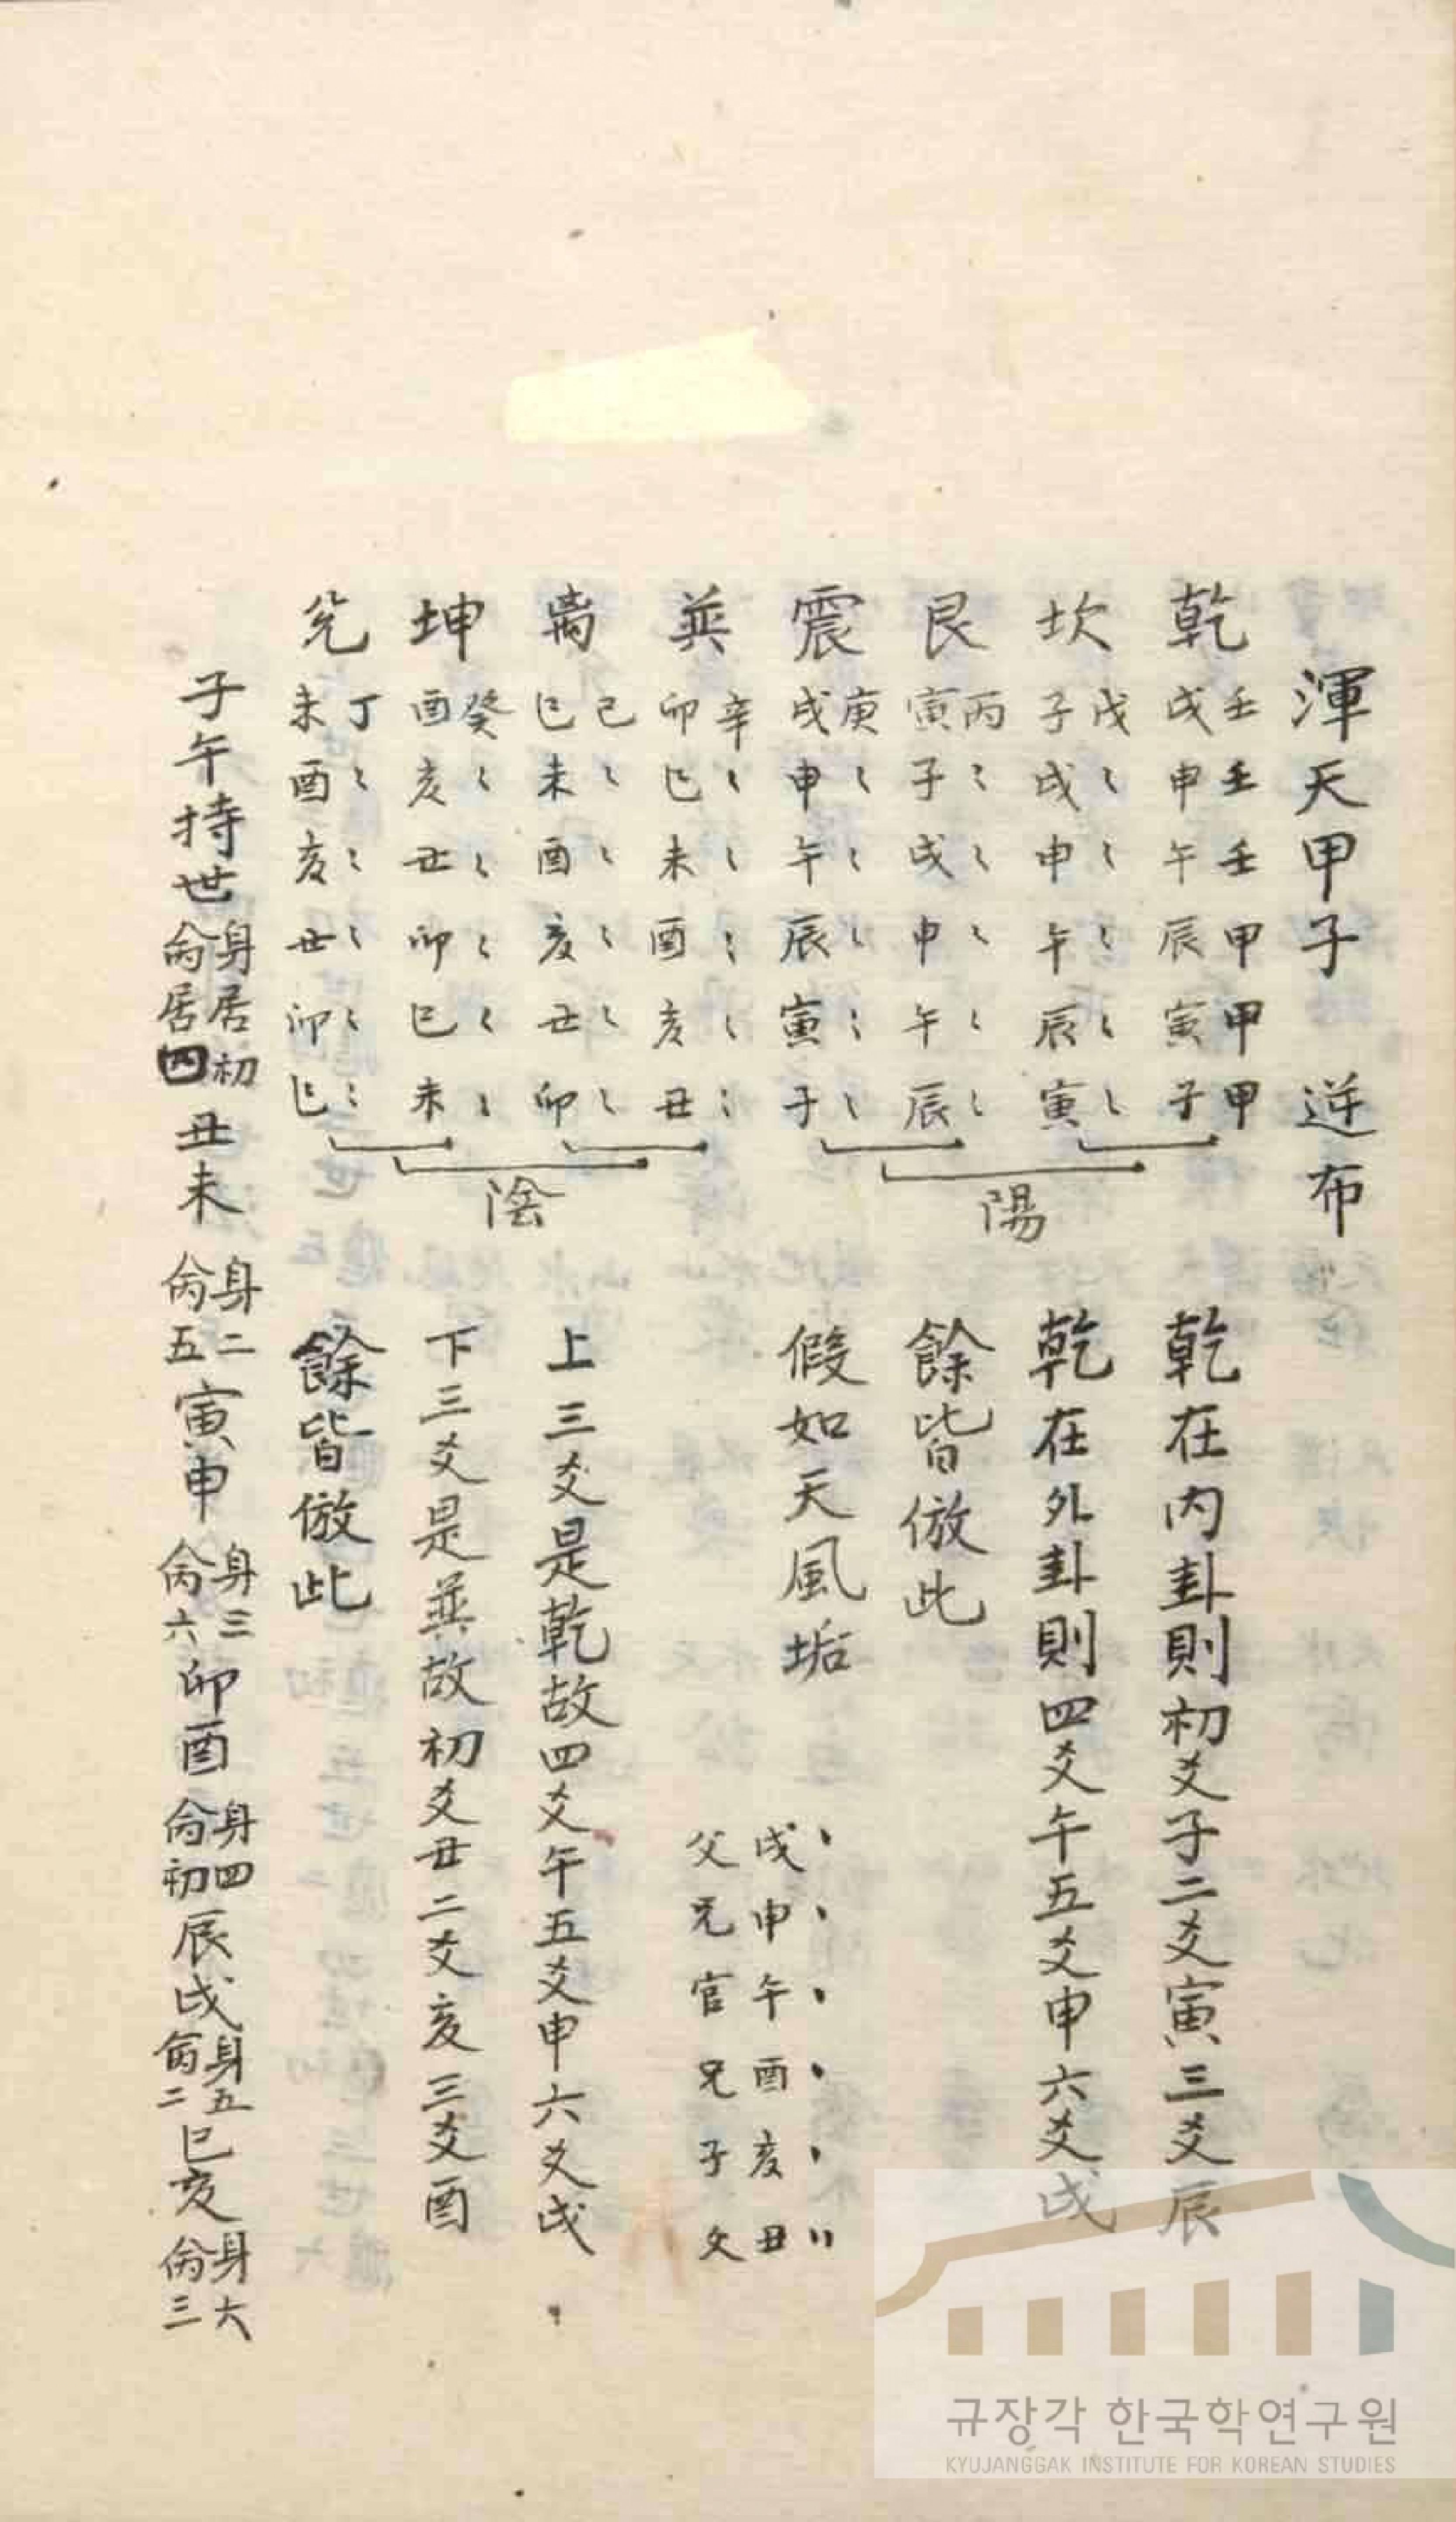 渾天甲子 逆布
乾
壬壬壬甲甲甲
戌申午辰寅子
坎
戊〻〻〻〻〻
子戌申午辰寅
艮
丙〻〻〻〻〻
寅子戌申午辰
震
庚〻〻〻〻〻
戌申午辰寅子
巽
辛〻〻〻〻〻
卯巳未酉亥丑
离
己〻〻〻〻〻
巳未酉亥丑卯
坤
癸〻〻〻〻〻
酉亥丑卯巳未
兌
丁〻〻〻〻〻
未酉亥丑卯巳
陽
陰
乾在内卦則初爻子二爻寅三爻辰
乾在外卦則四爻午五爻申六爻戌
餘皆倣此
假如天風垢
戌申午酉亥丑
父兄官兄子父
上三爻是乾故四爻午五爻申六爻戌
下三爻是巽故初爻丑二爻亥三爻酉
餘皆倣此
子午持世身居初命居四丑未身二命五寅申身三命六卯酉身四命初辰戌身五命二巳亥身六命三
규장각 한국학연구원
KYUJANGGAK INSTITUTE FOR KOREAN STUDIES